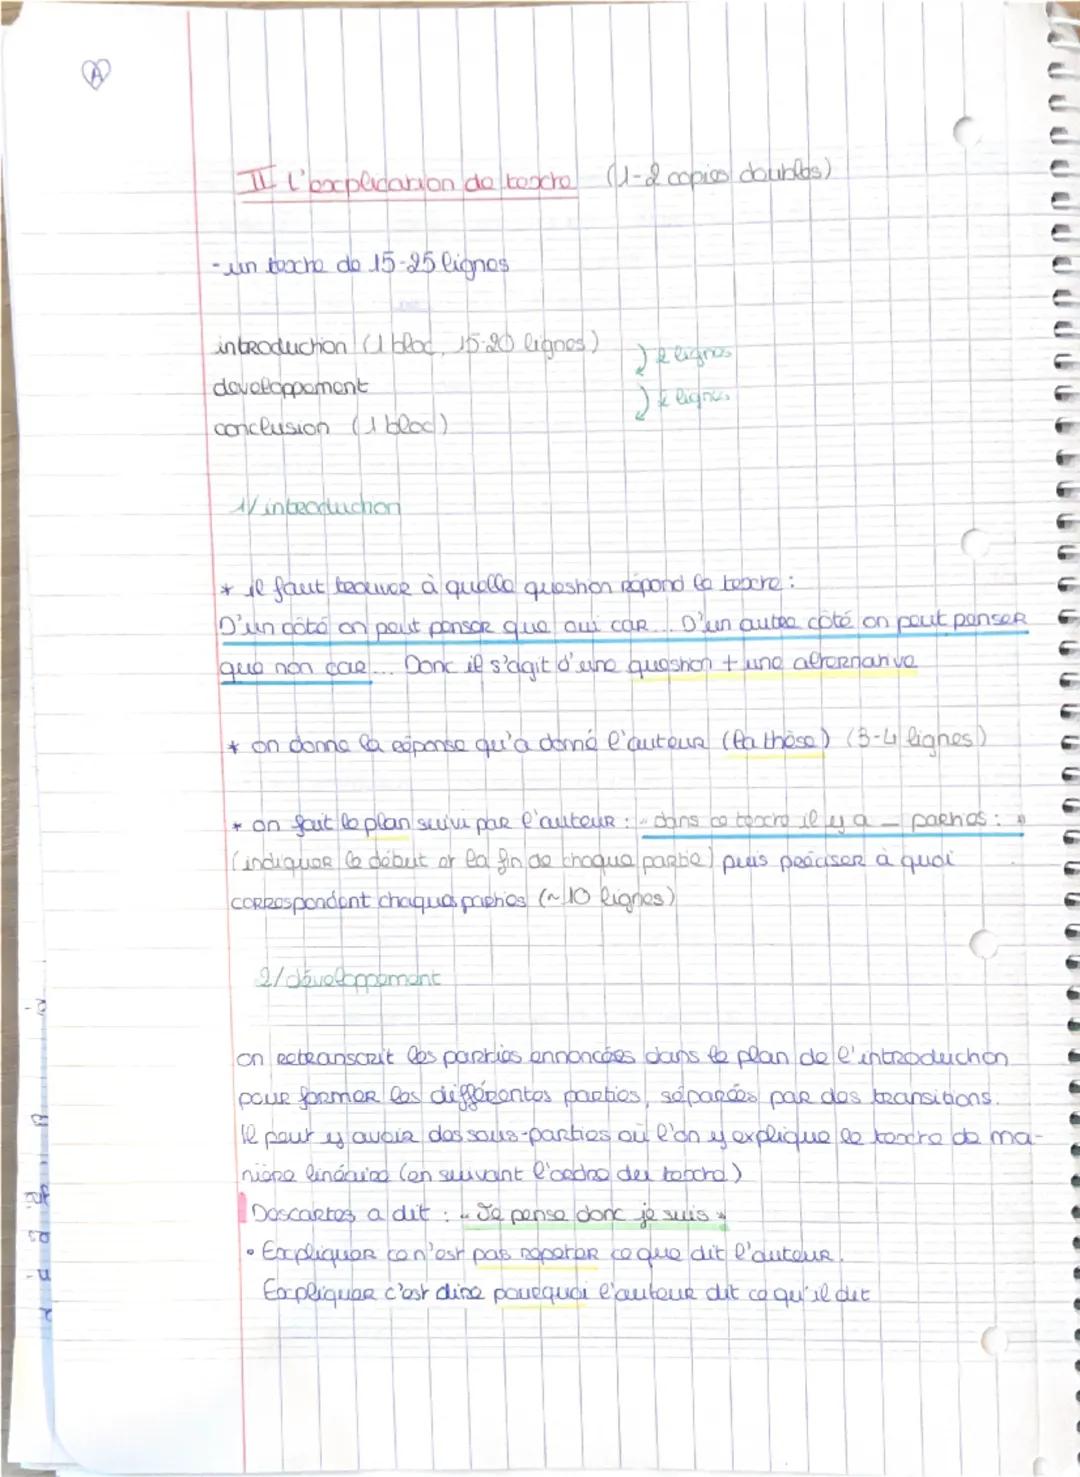 A
II L'explication de texte (1-2 copies doubles)
- un texte de 15-25 lignes
introduction (1 bloc, 15-20 lignes)
2 lignes
developpement
2 lignes
conclusion (1 bloc)
1/ introduction
* il faut trouver à quelle question répond le texte :
D'un côté on peut penser que oui car... D'un autre côté on peut penser
que non car... Donc il s'agit d'une question + une alternative
* on donne la réponse qu'a donné l'auteur (la thèse) (3-4 lignes)
* on fait le plan suivi par l'auteur : "dans ce texte il y a _ parties : "
(indiquer le début et la fin de chaque partie) puis préciser à quoi
correspondent chaques parties (~10 lignes)
2/ développement
on retranscrit les parties annoncées dans le plan de l'introduction
pour former les différentes parties, séparées par des transitions.
Il peut y avoir des sous-parties où l'on y explique le texte de ma-
nière linéaire (en suivant l'ordre du texte)
Descartes a dit : "Je pense donc je suis"
• Expliquer ce n'est pas répéter ce que dit l'auteur.
Expliquer c'est dire pourquoi l'auteur dit ce qu'il dit